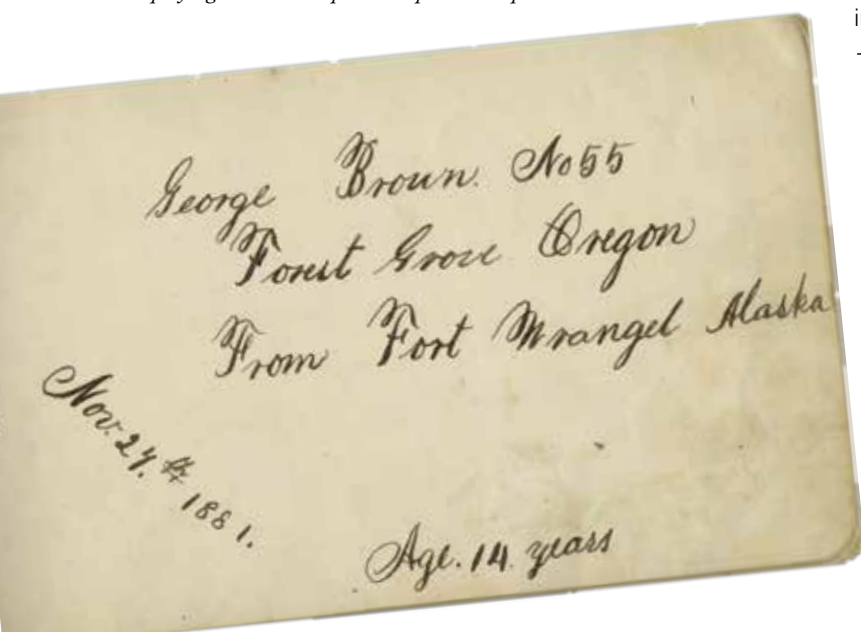 George Brown. No 55
Forest Grove Oregon
From Fort Wrangel Alaska
Nov. 27.th 1881.
Age. 14. years